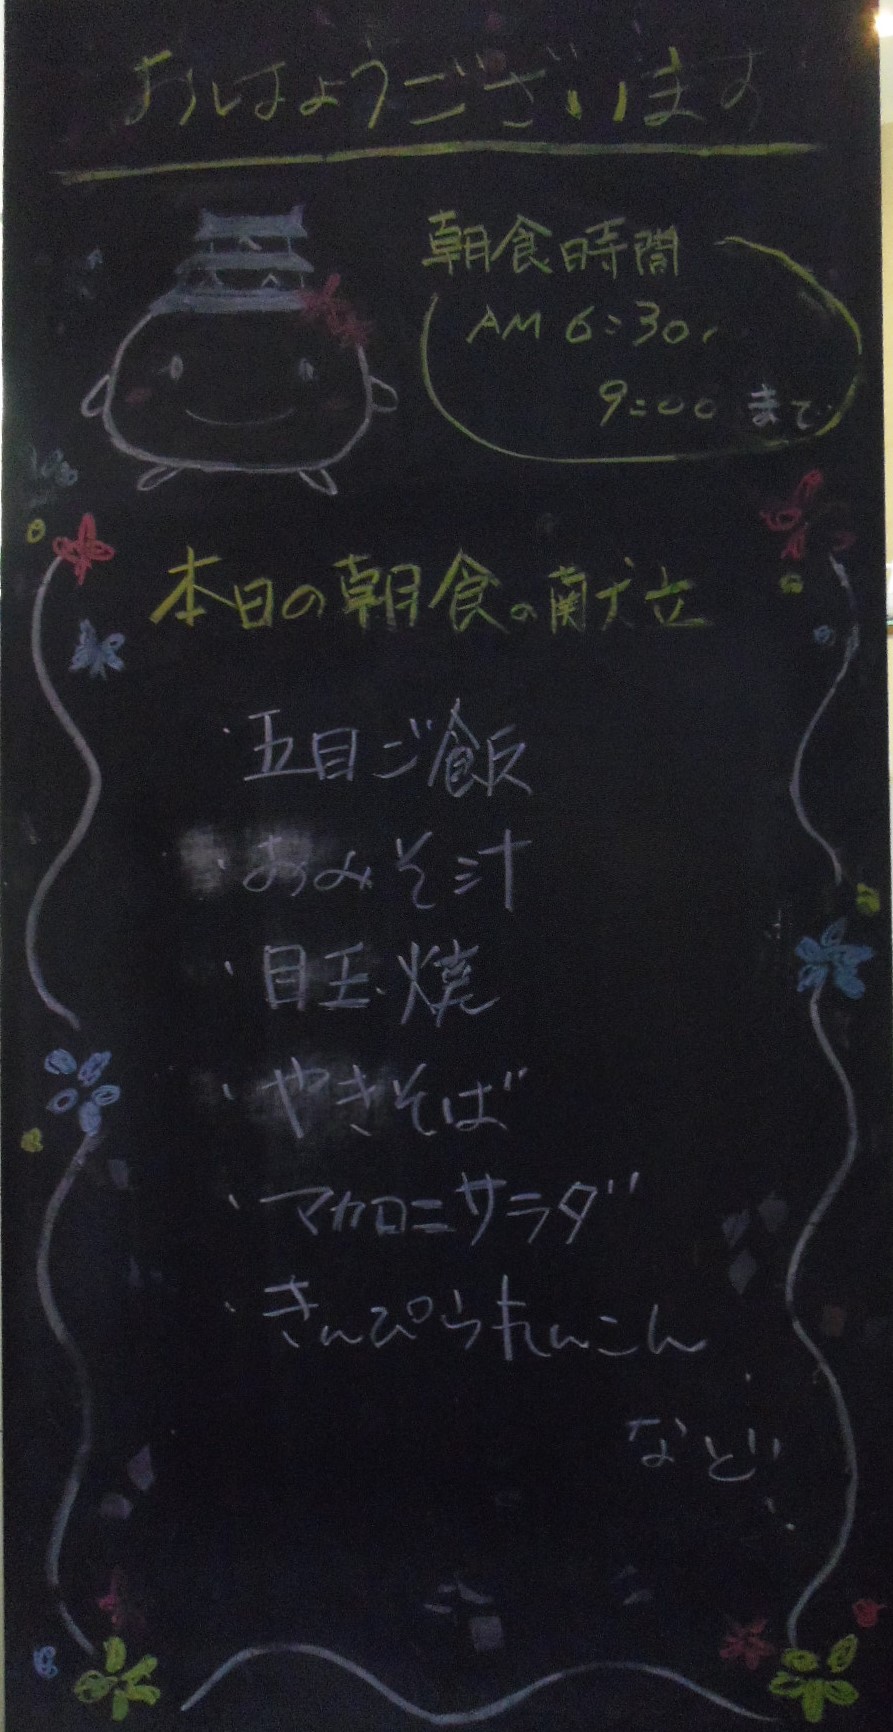 おはようございます
朝食時間
AM 6:30〜
9:00 まで
本日の朝食の献立
・五目ご飯
・おみそ汁
・目玉焼
・やきそば
・マカロニサラダ
・きんぴられんこん
など